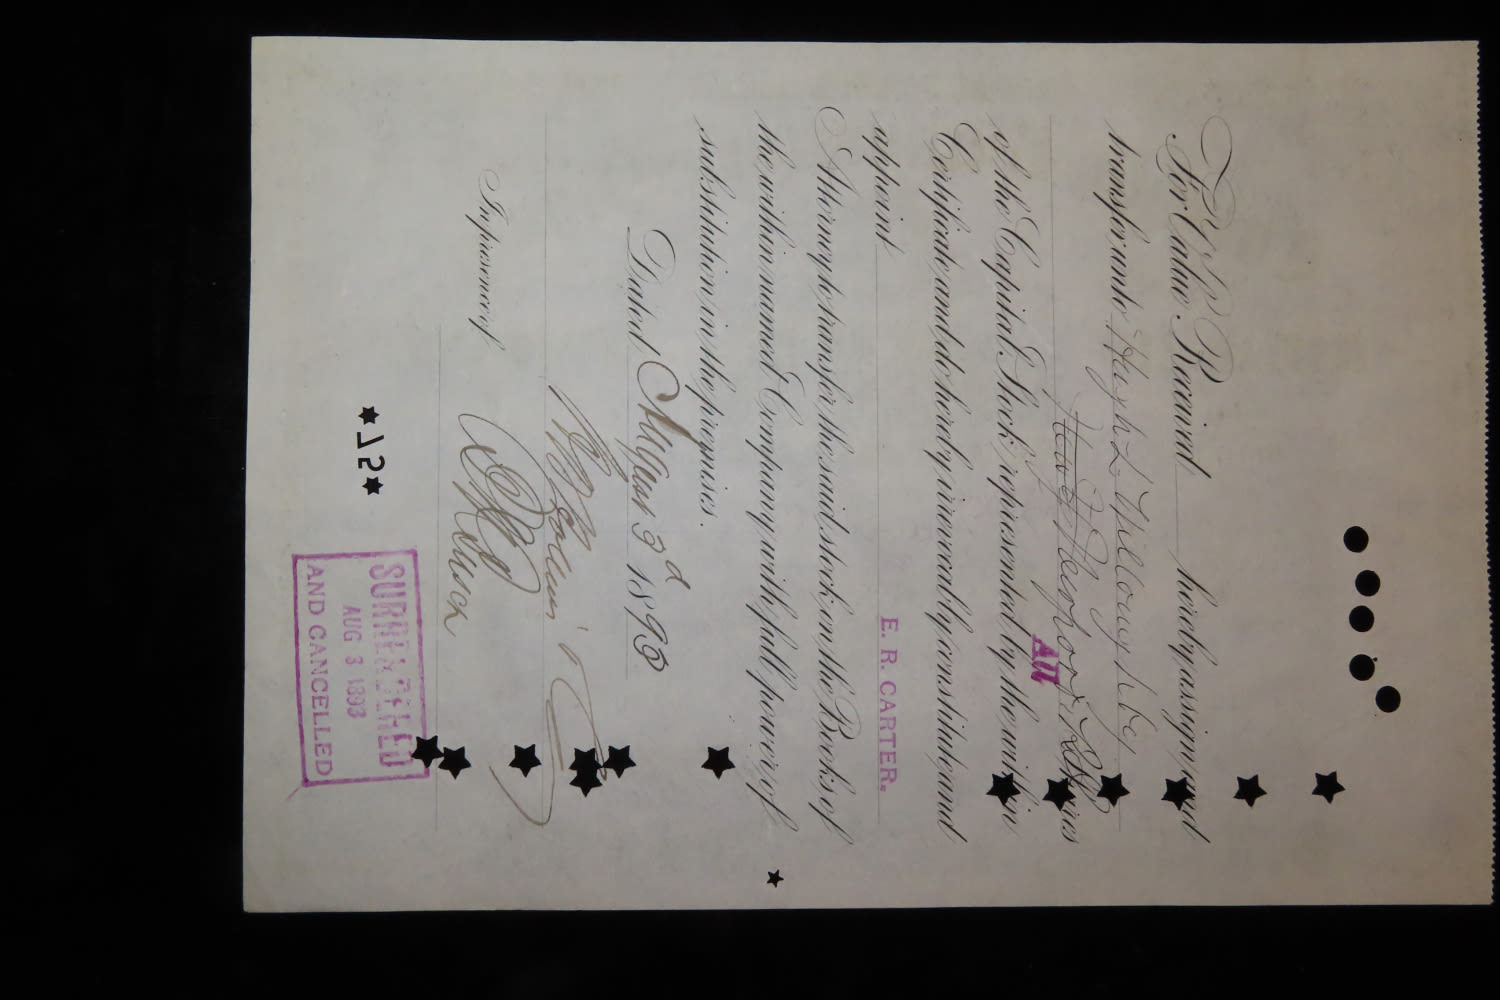 For Value Received hereby assign and
transfer unto Hugh L Willoughby
of the Capital Stock represented by the within
Certificate and do hereby irrevocably constitute and
appoint E. R. CARTER.
Attorney to transfer the said stock on the Books of
the within named Company with full power of
substitution in the premises.
Dated August 3d 1893
In presence of
SURRENDERED
AUG 3 1893
AND CANCELLED